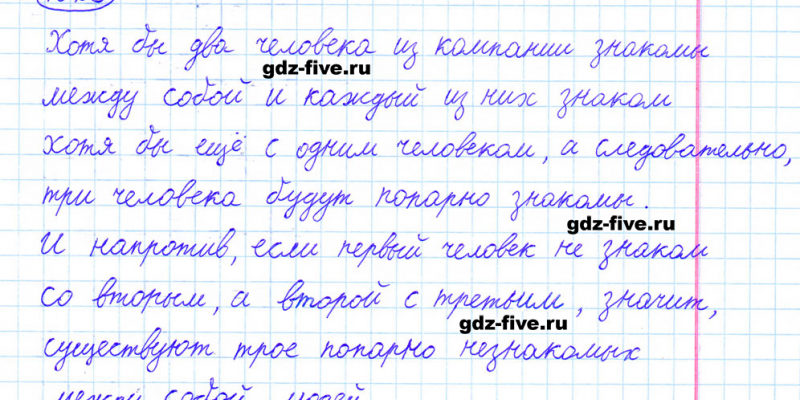 Хотя бы два человека из компании знакомы
gdz-five.ru
между собой и каждый из них знаком
хотя бы ещё с одним человеком, а следовательно,
три человека будут попарно знакомы.
gdz-five.ru
И напротив, если первый человек не знаком
со вторым, а второй с третьим, значит,
gdz-five.ru
существуют трое попарно незнакомых
между собой людей